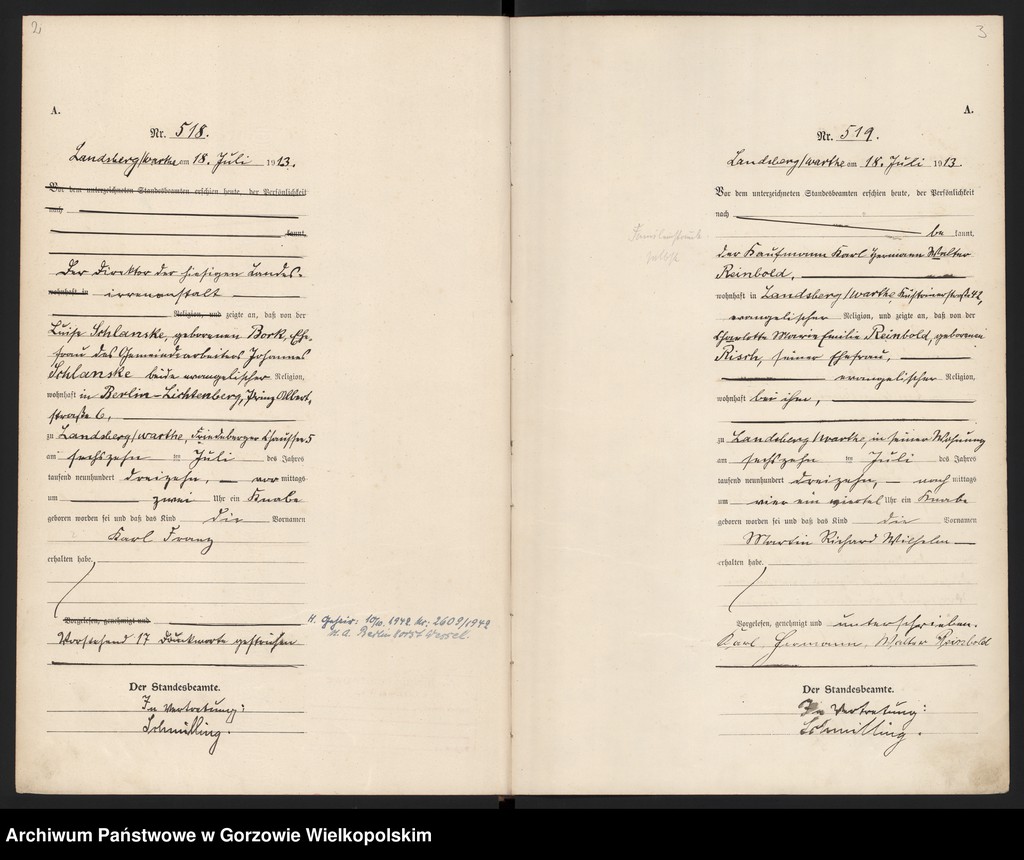 2
A.
Nr. 518.
Landsberg/Warthe am 18. Juli 1913.
Vor dem unterzeichneten Standesbeamten erschien heute, der Persönlichkeit
nach
kannt,
Der Direktor der hiesigen Landes-
wohnhaft in irrenanstalt
Religion, und zeigte an, daß von der
Luise Schlanske, geborenen Bork, Ehe-
frau des Gemeindearbeiters Johannes
Schlanske beide evangelischer Religion,
wohnhaft in Berlin-Lichtenberg, Prinz Albert-
straße 6,
zu Landsberg/Warthe, Friedeberger Chaussee 5
am sechszehn ten Juli des Jahres
tausend neunhundert dreizehn, vor mittags
um zwei Uhr ein Knabe
geboren worden sei und daß das Kind die Vornamen
Karl Franz
erhalten habe.
Vorgelesen, genehmigt und
Vorstehend 17 Druckworte gestrichen
Der Standesbeamte.
In Vertretung:
Schmilling.
H. Geheir: 1942 Nr. 2609/1942
St. A. Berlin Horst Wessel.
3
A.
Nr. 519.
Landsberg/Warthe am 18. Juli 1913.
Vor dem unterzeichneten Standesbeamten erschien heute, der Persönlichkeit
nach
be kannt,
der Kaufmann Karl Hermann Walter
Reinbold,
wohnhaft in Landsberg/Warthe, Küstrinerstraße 42,
evangelischer Religion, und zeigte an, daß von der
Charlotte Marie Emilie Reinbold, geborenen
Risch, seiner Ehefrau,
evangelischer Religion,
wohnhaft bei ihm,
zu Landsberg/Warthe, in seiner Wohnung
am sechszehn ten Juli des Jahres
tausend neunhundert dreizehn, nach mittags
um vier ein viertel Uhr ein Knabe
geboren worden sei und daß das Kind die Vornamen
Martin Richard Wilhelm
erhalten habe.
Vorgelesen, genehmigt und unterschrieben.
Karl Hermann Walter Reinbold
Der Standesbeamte.
In Vertretung:
Schmilling.
Archiwum Państwowe w Gorzowie Wielkopolskim